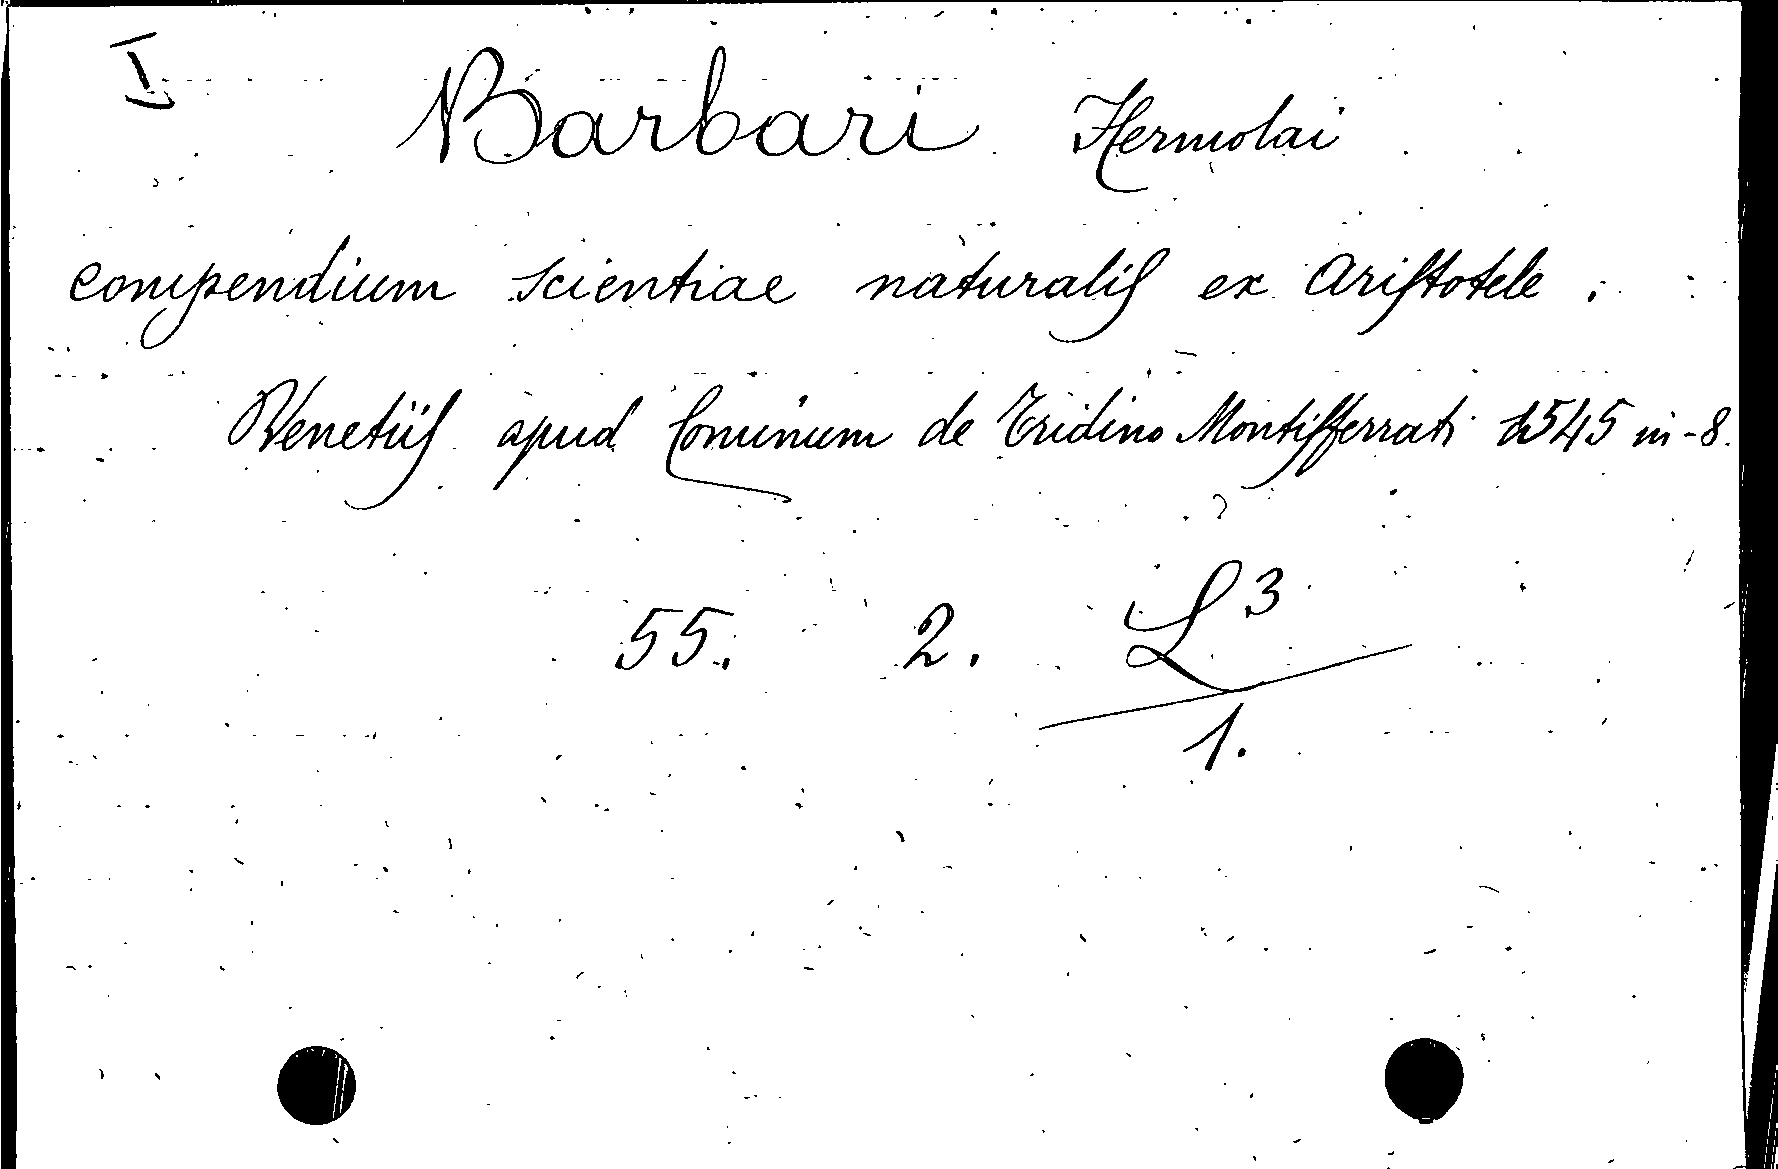 I
Barbari Hermolai
compendium scientiae naturalis ex Aristotele.
Venetiis apud Cominum de Tridino Montisferrati 1545 in-8.
55. 2. L 3
1.